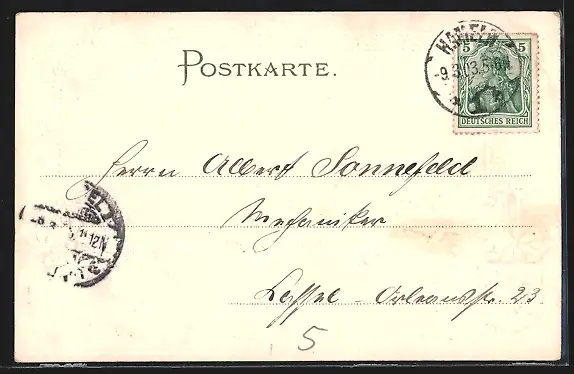 POSTKARTE.
HAMELN
-9.3.03.5-6N
5 5
DEUTSCHES REICH
Herrn Albert Sonnefeld
Mechaniker
Cassel - Orleansstr. 23
5